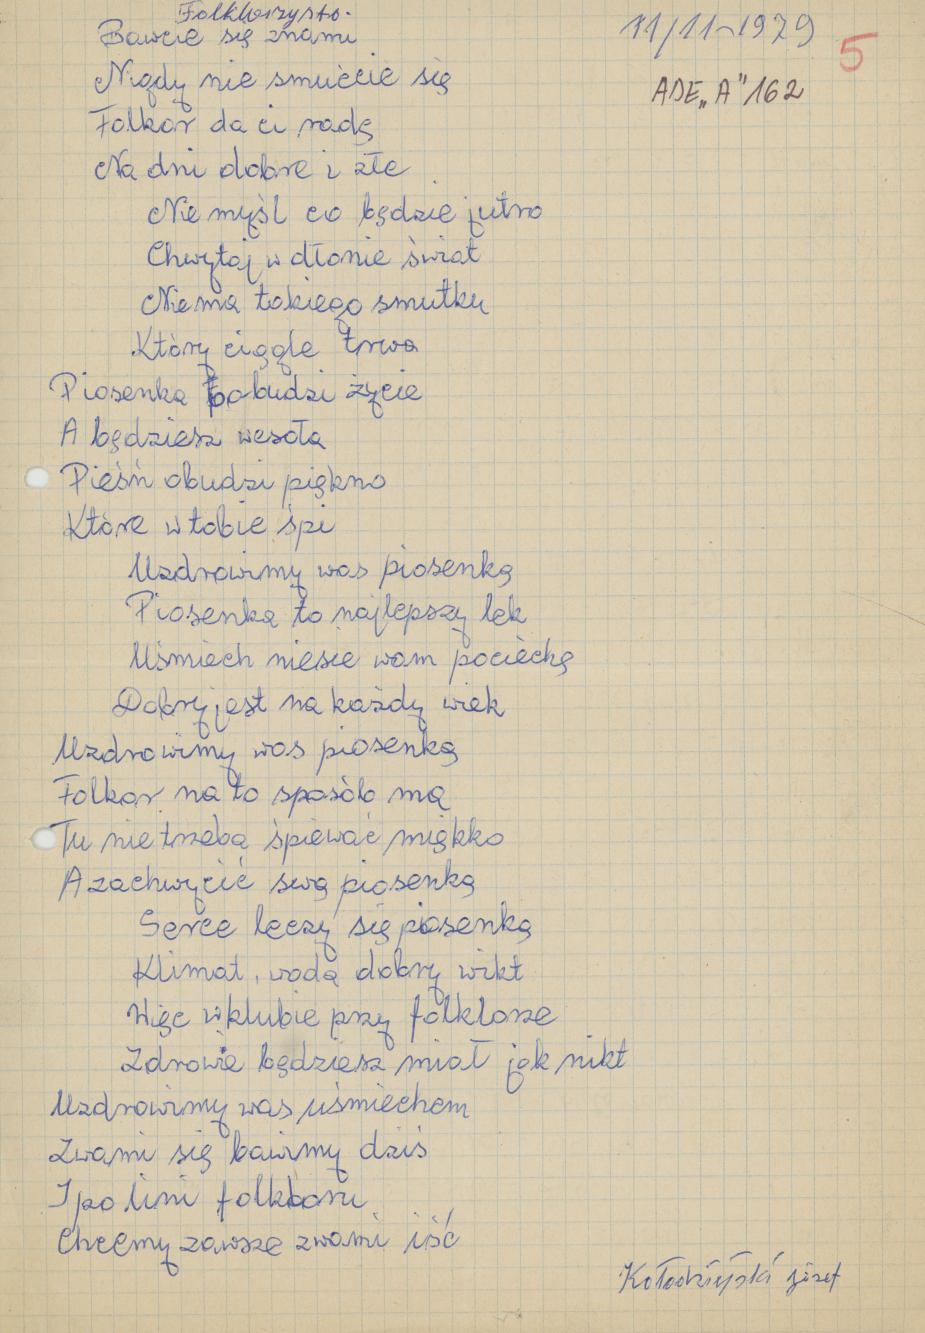 Folklorzysto.
11/11-1979
5
ADE „A" 162
Bawcie się znami
Nigdy nie smućcie się
Folkor da ci radę
Na dni dobre i złe
Nie myśl co będzie jutro
Chwytaj w dłonie świat
Niema takiego smutku
Który ciągle trwa
Piosenka pobudzi życie
A będziesz wesoła
Pieśń obudzi piękno
Które w tobie śpi
Uzdrowimy was piosenką
Piosenka to najlepszy lek
Uśmiech niesie wam pociechę
Dobry jest na każdy wiek
Uzdrowimy was piosenką
Folkor na to sposób ma
Tu nie trzeba śpiewać miękko
A zachwycić swą piosenką
Serce leczy się piosenką
Klimat, woda dobry wikt
Więc w klubie przy folklorze
Zdrowie będziesz miał jak nikt
Uzdrowimy was uśmiechem
Zwami się bawimy dziś
I po lini folkloru
Chcemy zawsze zwami iść
Kołodziński Józef